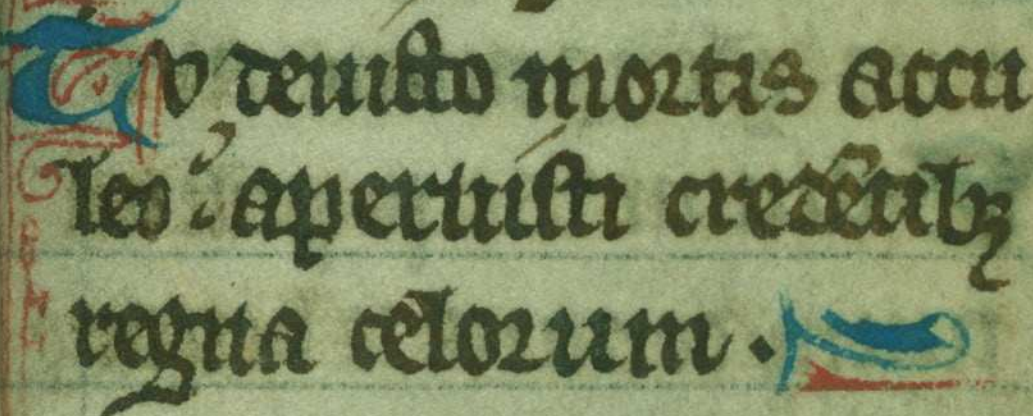 Tu deuicto mortis accu
leo : aperuisti credētibꝫ
regna celorum .